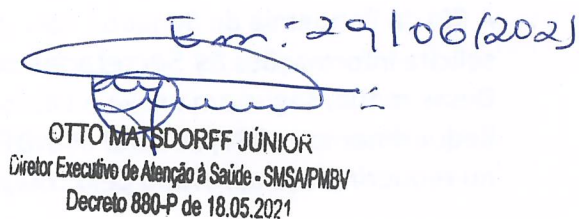 Em: 29/06/2021
OTTO MATSDORFF JÚNIOR
Diretor Executivo de Atenção à Saúde - SMSA/PMBV
Decreto 880-P de 18.05.2021